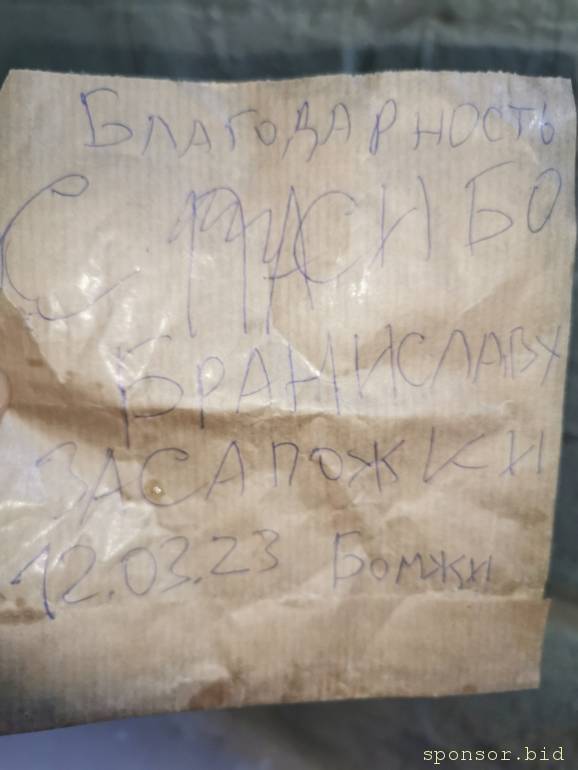 Благодарность
СПАСИБО
БРАНИСЛАВУ
ЗА САПОЖКИ
12.03.23 Бомжи
sponsor.bid